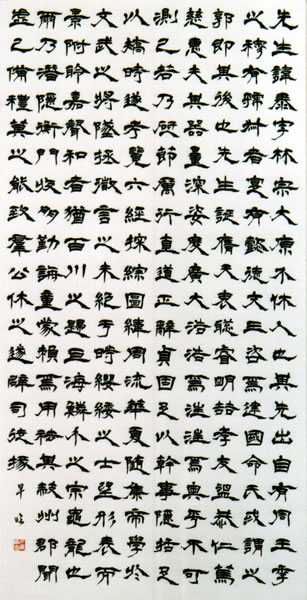 先生諱泰字林宗太原介休人也其先出自有周王季
之穆有虢叔者寔有懿德文王咨焉建國命氏或謂之
郭即其後也先生誕膺天衷聰睿明哲孝友溫恭仁篤
慈惠夫其器量深姿度廣大浩浩焉汪汪焉奧乎不可
測已若乃砥節厲行直道正辭貞固足以幹事隱括足
以矯時遂考覽六經探綜圖緯周流華夏隨集帝學收
文武之將墜拯微言之未絕于時纓緌之士望形表而
景附聆嘉聲和者猶百川之歸巨海鱗介之宗龜龍也
爾乃潛隱衡門收朋勤誨童蒙賴焉用祛其蔽州郡聞
虛己備禮莫之能致羣公休之遂辟司徒掾